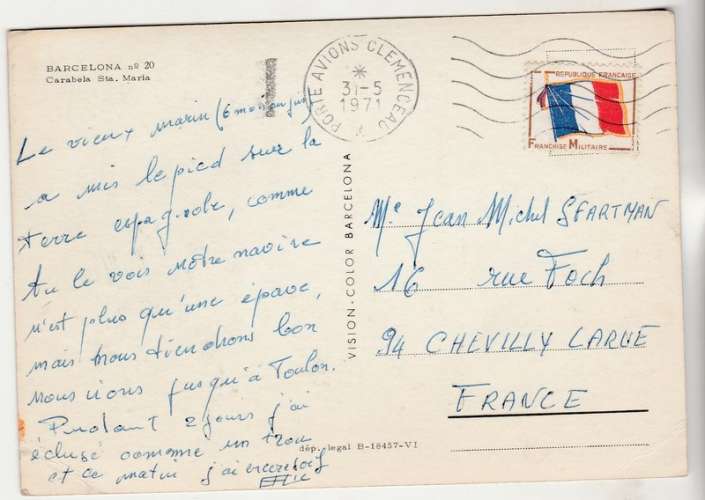 BARCELONA nº 20
Carabela Sta. Maria
PORTE AVIONS CLEMENCEAU
31-5
1971
REPUBLIQUE FRANCAISE
FRANCHISE MILITAIRE
Le vieux marin (6 mois
a mis le pied sur la
terre espagnole, comme
tu le vois notre navire
n'est plus qu'une épave,
mais nous tiendrons bon
nous irons jusqu'à Toulon.
Pendant 2 jours j'ai
éclusé comme un trou
et ce matin j'ai encore soif
VISION-COLOR BARCELONA
Mr Jean Michel SFARTMAN
16 rue Foch
94 CHEVILLY LARUE
FRANCE
dép. legal B-18457-VI